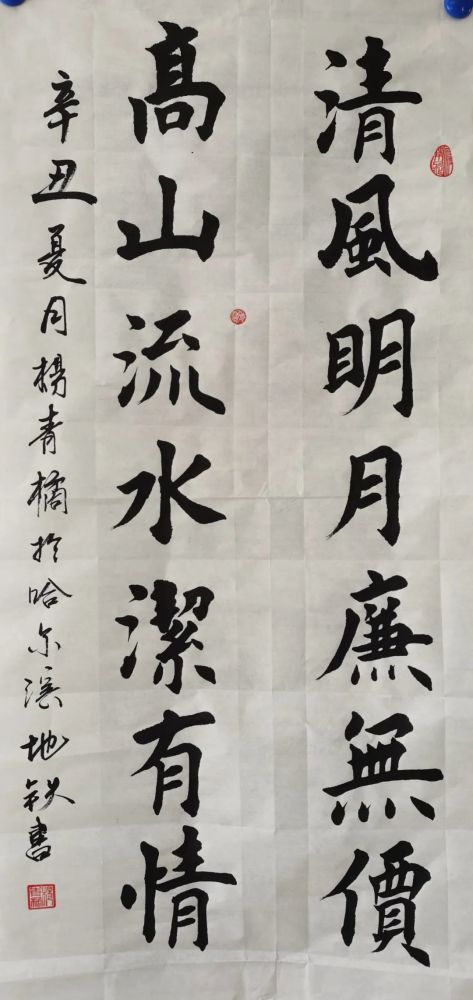 清風明月廉無價
高山流水潔有情
辛丑夏月楊青橘於哈尔滨地铁書